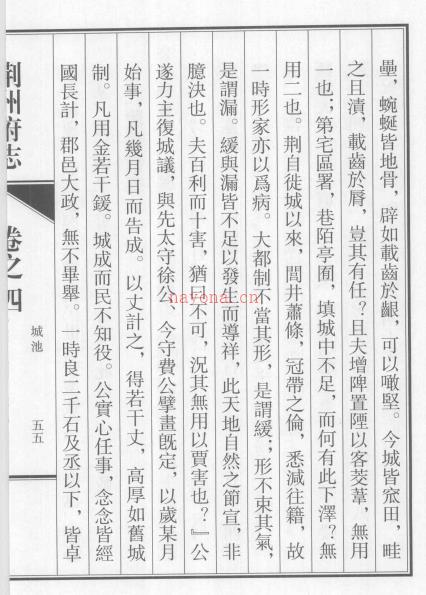 壘，蜿蜒皆地骨，辟如載齒於齦，可以噉堅。今城皆窊田，畦
之且漬，載齒於脣，豈其有任？且夫增陴置陻以客茭葦，無用
一也；第宅區署，巷陌亭囿，填城中不足，而何有此下澤？無
用二也。荆自徙城以來，閭井蕭條，冠帶之倫，悉減往籍，故
一時形家亦以爲病。大都制不當其形，是謂緩；形不束其氣，
是謂漏。緩與漏皆不足以發生而導祥，此天地自然之節宣，非
臆決也。夫百利而十害，猶曰不可，況其無用以賈害也？』公
遂力主復城議，與先太守徐公、今守費公擘畫旣定，以歲某月
始事，凡幾月日而告成。以丈計之，得若干丈，高厚如舊城
制。凡用金若干鍰。城成而民不知役。公實心任事，念念皆經
國長計，郡邑大政，無不畢舉。一時良二千石及丞以下，皆卓
荆州府志 卷之四 城池 五五
nayona.cn